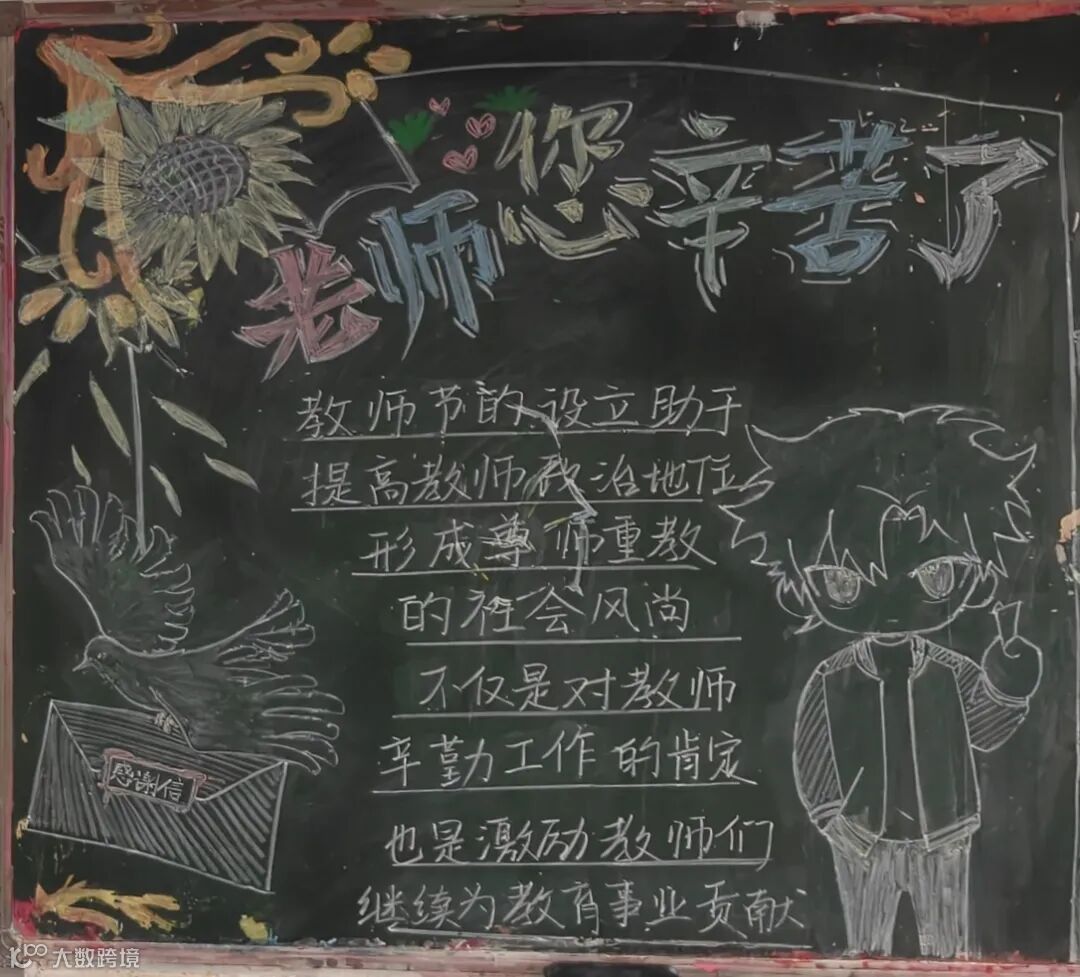 老师您辛苦了
教师节的设立助于
提高教师政治地位
形成尊师重教
的社会风尚
不仅是对教师
辛勤工作的肯定
也是激励教师们
继续为教育事业贡献
感谢信
大数跨境